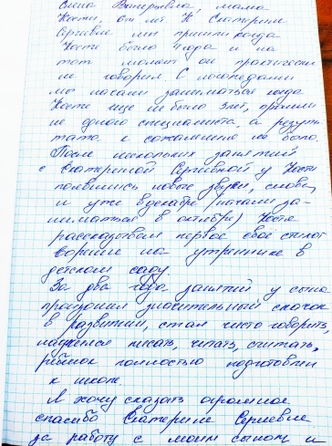 Елена Викторовна, мама
Кости, 6т лет. К Екатерине
Сергеевне мы пришли когда
Косте было 4 года и на
тот момент он практически
не говорил. С логопедами
мы начали заниматься когда
Косте ещё не было 3 лет, прошли
не одного специалиста, а резуль
тата к сожалению не было.
После нескольких занятий
с Екатериной Сергеевной у Кости
появились новые звуки, слова,
и уже в декабре (начали за-
ниматься в октябре) Костя
рассказывал первое свое стихот
ворение на утреннике в
детском саду.
За два года занятий у сына
произошел значительный скачок
в развитии, стал чисто говорить,
научился писать, читать, считать,
ребёнок полностью подготовлен
к школе.
Я хочу сказать огромное
спасибо Екатерине Сергеевне
за работу с моим сыном, и